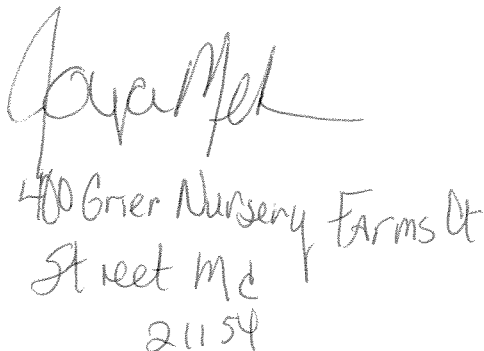 400 Grier Nursery Farms Ct
Street Md
21154